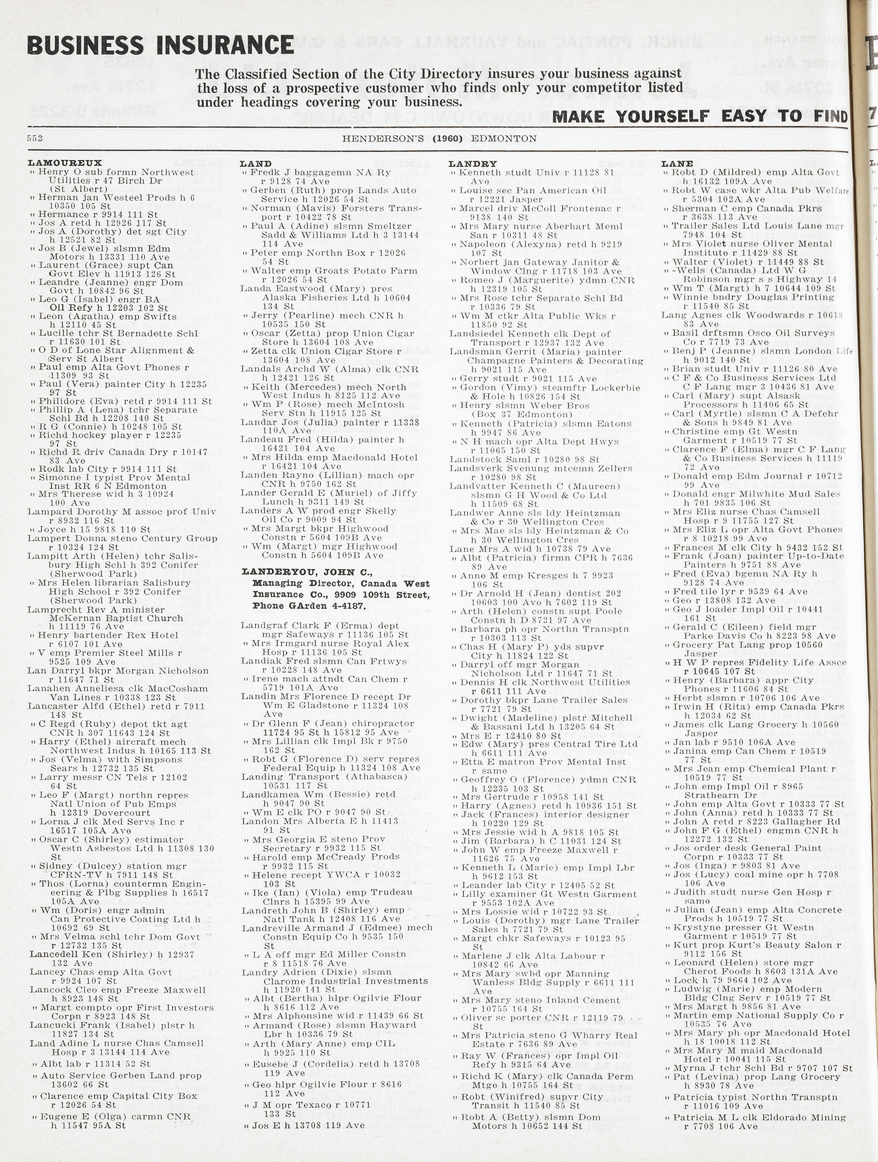 BUSINESS INSURANCE
The Classified Section of the City Directory insures your business against
the loss of a prospective customer who finds only your competitor listed
under headings covering your business.
MAKE YOURSELF EASY TO FIND
552
HENDERSON'S (1960) EDMONTON
LAMOUREUX
" Henry O sub formn Northwest
Utilities r 47 Birch Dr
(St Albert)
" Herman jan Westeel Prods h 6
10350 105 St
" Hermance r 9914 111 St
" Jos A retd h 12926 117 St
" Jos A (Dorothy) det sgt City
h 12521 82 St
" Jos B (Jewel) slsmn Edm
Motors h 13331 110 Ave
" Laurent (Grace) supt Can
Govt Elev h 11913 126 St
" Leandre (Jeanne) engr Dom
Govt h 10842 96 St
" Leo G (Isabel) engr BA
Oil Refy h 12203 102 St
" Leon (Agatha) emp Swifts
h 12110 45 St
" Lucille tchr St Bernadette Schl
r 11630 101 St
" O D of Lone Star Alignment &
Serv St Albert
" Paul emp Alta Govt Phones r
11309 93 St
" Paul (Vera) painter City h 12235
97 St
" Philidore (Eva) retd r 9914 111 St
" Phillip A (Lena) tchr Separate
Schl Bd h 12208 140 St
" R G (Connie) h 10248 105 St
" Richd hockey player r 12235
97 St
" Richd R driv Canada Dry r 10147
83 Ave
" Rodk lab City r 9914 111 St
" Simonne I typist Prov Mental
Inst RR 6 N Edmonton
" Mrs Therese wid h 3 10924
100 Ave
Lampard Dorothy M assoc prof Univ
r 8932 116 St
" Joyce h 15 9818 110 St
Lampert Donna steno Century Group
r 10324 124 St
Lampitt Arth (Helen) tchr Salis-
bury High Schl h 392 Conifer
(Sherwood Park)
" Mrs Helen librarian Salisbury
High School r 392 Conifer
(Sherwood Park)
Lamprecht Rev A minister
McKernan Baptist Church
h 11119 76 Ave
" Henry bartender Rex Hotel
r 6107 101 Ave
" V emp Premier Steel Mills r
9525 109 Ave
Lan Darryl bkpr Morgan Nicholson
r 11647 71 St
Lanahen Anneliesa clk MacCosham
Van Lines r 10338 123 St
Lancaster Alfd (Ethel) retd r 7911
148 St
" C Regd (Ruby) depot tkt agt
CNR h 307 11643 124 St
" Harry (Ethel) aircraft mech
Northwest Indus h 10165 113 St
" Jos (Velma) with Simpsons
Sears h 12732 135 St
" Larry messr CN Tels r 12102
64 St
" Leo F (Margt) northn repres
Natl Union of Pub Emps
h 12319 Dovercourt
" Lorna J clk Med Servs Inc r
16517 105A Ave
" Oscar C (Shirley) estimator
Westn Asbestos Ltd h 11308 130
St
" Sidney (Dulcey) station mgr
CFRN-TV h 7911 148 St
" Thos (Lorna) countermn Engin-
eering & Plbg Supplies h 16517
105A Ave
" Wm (Doris) engr admin
Can Protective Coating Ltd h
10692 69 St
" Mrs Velma schl tchr Dom Govt
r 12732 135 St
Lancedell Ken (Shirley) h 12937
132 Ave
Lancey Chas emp Alta Govt
r 9924 107 St
Lancock Cleo emp Freeze Maxwell
h 8923 148 St
" Margt compto opr First Investors
Corpn r 8923 148 St
Lancucki Frank (Isabel) plstr h
11827 134 St
Land Adine L nurse Chas Camsell
Hosp r 3 13144 114 Ave
" Albt lab r 11314 52 St
" Auto Service Gerben Land prop
13602 66 St
" Clarence emp Capital City Box
r 12026 54 St
" Eugene E (Olga) carmn CNR
h 11547 95A St
LAND
" Fredk J baggagemn NA Ry
r 9128 74 Ave
" Gerben (Ruth) prop Lands Auto
Service h 12026 54 St
" Norman (Mavis) Forsters Trans-
port r 10422 78 St
" Paul A (Adine) slsmn Smeltzer
Sadd & Williams Ltd h 3 13144
114 Ave
" Peter emp Northn Box r 12026
54 St
" Walter emp Groats Potato Farm
r 12026 54 St
Landa Eastwood (Mary) pres
Alaska Fisheries Ltd h 10604
134 St
" Jerry (Pearline) mech CNR h
10535 150 St
" Oscar (Zetta) prop Union Cigar
Store h 13604 108 Ave
" Zetta clk Union Cigar Store r
13604 108 Ave
Landals Archd W (Alma) clk CNR
h 12421 126 St
" Keith (Mercedes) mech North
West Indus h 8125 112 Ave
" Wm P (Rose) mech McIntosh
Serv Stn h 11915 125 St
Landar Jos (Julia) painter r 11338
110A Ave
Landeau Fred (Hilda) painter h
16421 104 Ave
" Mrs Hilda emp Macdonald Hotel
r 16421 104 Ave
Landen Rayno (Lillian) mach opr
CNR h 9750 162 St
Lander Gerald E (Muriel) of Jiffy
Lunch h 9311 149 St
Landers A W prod engr Skelly
Oil Co r 9009 94 St
" Mrs Margt bkpr Highwood
Constn r 5604 109B Ave
" Wm (Margt) mgr Highwood
Constn h 5604 109B Ave
LANDERYOU, JOHN C.,
Managing Director, Canada West
Insurance Co., 9909 109th Street,
Phone GArden 4-4187.
Landgraf Clark F (Erma) dept
mgr Safeways r 11136 105 St
" Mrs Irmgard nurse Royal Alex
Hosp r 11136 105 St
Landiak Fred slsmn Can Frtwys
r 10228 148 Ave
" Irene mach attndt Can Chem r
5719 101A Ave
Landin Mrs Florence D recept Dr
Wm E Gladstone r 11324 108
Ave
" Dr Glenn F (Jean) chiropractor
11724 95 St h 15812 95 Ave
" Mrs Lillian clk Impl Bk r 9750
162 St
" Robt G (Florence D) serv repres
Federal Equip h 11324 108 Ave
Landing Transport (Athabasca)
10531 117 St
Landkamea Wm (Bessie) retd
h 9047 90 St
" Wm E clk PO r 9047 90 St
Landon Mrs Alberta E h 11413
91 St
" Mrs Georgia E steno Prov
Secretary r 9932 115 St
" Harold emp McCready Prods
r 9932 115 St
" Helene recept YWCA r 10032
103 St
" Ike (Ian) (Viola) emp Trudeau
Clnrs h 15395 99 Ave
Landreth John B (Shirley) emp
Natl Tank h 12408 116 Ave
Landreville Armand J (Edmee) mech
Constn Equip Co h 9535 150
St
" L A off mgr Ed Miller Constn
r 8 11518 76 Ave
Landry Adrien (Dixie) slsmn
Clarome Industrial Investments
h 11920 141 St
" Albt (Bertha) hlpr Ogilvie Flour
h 8616 112 Ave
" Mrs Alphonsine wid r 11439 66 St
" Armand (Rose) slsmn Hayward
Lbr h 10336 79 St
" Arth (Mary Anne) emp CIL
h 9925 110 St
" Eusebe J (Cordelia) retd h 13708
119 Ave
" Geo hlpr Ogilvie Flour r 8616
112 Ave
" J M opr Texaco r 10771
133 St
" Jos E h 13708 119 Ave
LANDRY
" Kenneth studt Univ r 11128 81
Ave
" Louise sec Pan American Oil
r 12221 Jasper
" Marcel driv McColl Frontenac r
9138 140 St
" Mrs Mary nurse Aberhart Meml
San r 10311 48 St
" Napoleon (Alexyna) retd h 9219
107 St
" Norbert jan Gateway Janitor &
Window Clng r 11718 103 Ave
" Romeo J (Marguerite) ydmn CNR
h 12319 105 St
" Mrs Rose tchr Separate Schl Bd
r 10336 79 St
" Wm M ctkr Alta Public Wks r
11850 92 St
Landsiedel Kenneth clk Dept of
Transport r 12937 132 Ave
Landsman Gerrit (Maria) painter
Champagne Painters & Decorating
h 9021 115 Ave
" Gerry studt r 9021 115 Ave
" Gordon (Vimy) steamftr Lockerbie
& Hole h 10826 154 St
" Henry slsmn Weber Bros
(Box 37 Edmonton)
" Kenneth (Patricia) slsmn Eatons
h 9947 86 Ave
" N H mach opr Alta Dept Hwys
r 11065 150 St
Landstock Saml r 10280 98 St
Landsverk Svenung mtcemn Zellers
r 10280 98 St
Landvatter Kenneth C (Maureen)
slsmn G H Wood & Co Ltd
h 11509 68 St
Landwer Anne sls ldy Heintzman
& Co r 30 Wellington Cres
" Mrs Mae sls ldy Heintzman & Co
h 30 Wellington Cres
Lane Mrs A wid h 10738 79 Ave
" Albt (Patricia) firmn CPR h 7636
89 Ave
" Anne M emp Kresges h 7 9923
106 St
" Dr Arnold H (Jean) dentist 202
10603 100 Ave h 7602 119 St
" Arth (Helen) constn supt Poole
Constn h D 8721 97 Ave
" Barbara ph opr Northn Transptn
r 10303 113 St
" Chas H (Mary P) yds supvr
City h 11824 122 St
" Darryl off mgr Morgan
Nicholson Ltd r 11647 71 St
" Dennis H clk Northwest Utilities
r 6611 111 Ave
" Dorothy bkpr Lane Trailer Sales
r 7721 79 St
" Dwight (Madeline) plstr Mitchell
& Bassani Ltd h 13205 64 St
" Mrs E r 12410 80 St
" Edw (Mary) pres Central Tire Ltd
h 6611 111 Ave
" Etta E matron Prov Mental Inst
r same
" Geoffrey O (Florence) ydmn CNR
h 12235 103 St
" Mrs Gertrude r 10958 141 St
" Harry (Agnes) retd h 10936 151 St
" Jack (Frances) interior designer
h 10220 129 St
" Mrs Jessie wid h A 9818 105 St
" Jim (Barbara) h C 11031 124 St
" John W emp Freeze Maxwell r
11626 75 Ave
" Kenneth L (Marie) emp Impl Lbr
h 9612 153 St
" Leander lab City r 12405 52 St
" Lilly examiner Gt Westn Garment
r 9553 102A Ave
" Mrs Lossie wid r 10722 93 St
" Louis (Dorothy) mgr Lane Trailer
Sales h 7721 79 St
" Margt chkr Safeways r 10123 95
St
" Marlene J clk Alta Labour r
10842 66 Ave
" Mrs Mary swbd opr Manning
Wanless Bldg Supply r 6611 111
Ave
" Mrs Mary steno Inland Cement
r 10755 164 St
" Oliver sc porter CNR r 12119 79
St
" Mrs Patricia steno G Wharry Real
Estate r 7636 89 Ave
" Ray W (Frances) opr Impl Oil
Refy h 9315 64 Ave
" Richd K (Mary) clk Canada Perm
Mtge h 10755 164 St
" Robt (Winifred) supvr City
Transit h 11540 85 St
" Robt A (Betty) slsmn Dom
Motors h 10652 144 St
LANE
" Robt D (Mildred) emp Alta Govt
h 16132 109A Ave
" Robt W case wkr Alta Pub Welfare
r 5304 102A Ave
" Sherman C emp Canada Pkrs
r 3638 113 Ave
" Trailer Sales Ltd Louis Lane mgr
7948 104 St
" Mrs Violet nurse Oliver Mental
Institute r 11429 88 St
" Walter (Violet) r 11449 88 St
" -Wells (Canada) Ltd W G
Robinson mgr s s Highway 14
" Wm T (Margt) h 7 10644 109 St
" Winnie bndry Douglas Printing
r 11540 85 St
Lang Agnes clk Woodwards r 10618
83 Ave
" Basil drftsmn Osco Oil Surveys
Co r 7719 73 Ave
" Benj P (Jeanne) slsmn London Life
h 9012 140 St
" Brian studt Univ r 11126 80 Ave
" C F & Co Business Services Ltd
C F Lang mgr 3 10436 81 Ave
" Carl (Mary) supt Alsask
Processors h 11406 65 St
" Carl (Myrtle) slsmn C A Defehr
& Sons h 9849 81 Ave
" Christine emp Gt Westn
Garment r 10519 77 St
" Clarence F (Elma) mgr C F Lang
& Co Business Services h 11119
72 Ave
" Donald emp Edm Journal r 10712
99 Ave
" Donald engr Milwhite Mud Sales
h 701 9835 106 St
" Mrs Eliz nurse Chas Camsell
Hosp r 9 11755 127 St
" Mrs Eliz L opr Alta Govt Phones
r 8 10218 99 Ave
" Frances M clk City h 9432 152 St
" Frank (Joan) painter Up-to-Date
Painters h 9751 88 Ave
" Fred (Eva) bgemn NA Ry h
9128 74 Ave
" Fred tile lyr r 9539 64 Ave
" Geo r 13808 132 Ave
" Geo J loader Impl Oil r 10441
161 St
" Gerald C (Eileen) field mgr
Parke Davis Co h 8223 98 Ave
" Grocery Pat Lang prop 10560
Jasper
" H W P repres Fidelity Life Assce
r 10645 107 St
" Henry (Barbara) appr City
Phones r 11606 84 St
" Herbt slsmn r 10706 106 Ave
" Irwin H (Rita) emp Canada Pkrs
h 12034 62 St
" James clk Lang Grocery h 10560
Jasper
" Jan lab r 9510 106A Ave
" Janina emp Can Chem r 10519
77 St
" Mrs Jean emp Chemical Plant r
10519 77 St
" John emp Impl Oil r 8965
Strathearn Dr
" John emp Alta Govt r 10333 77 St
" John (Anna) retd h 10333 77 St
" John A retd r 8223 Gallagher Rd
" John F G (Ethel) engmn CNR h
12272 132 St
" Jos order desk General Paint
Corpn r 10333 77 St
" Jos (Inga) r 9803 81 Ave
" Jos (Lucy) coal mine opr h 7708
106 Ave
" Judith studt nurse Gen Hosp r
same
" Julian (Jean) emp Alta Concrete
Prods h 10519 77 St
" Krystyne presser Gt Westn
Garment r 10519 77 St
" Kurt prop Kurt's Beauty Salon r
9112 156 St
" Leonard (Helen) store mgr
Cherot Foods h 8603 131A Ave
" Lock h 79 9664 102 Ave
" Ludwig (Marie) emp Modern
Bldg Clng Serv r 10519 77 St
" Mrs Margt h 9856 81 Ave
" Martin emp National Supply Co r
10535 76 Ave
" Mrs Mary ph opr Macdonald Hotel
h 18 10018 112 St
" Mrs Mary M maid Macdonald
Hotel r 10041 115 St
" Myrna J tchr Schl Bd r 9707 107 St
" Pat (Levina) prop Lang Grocery
h 8930 78 Ave
" Patricia typist Northn Transptn
r 11016 109 Ave
" Patricia M L clk Eldorado Mining
r 7708 106 Ave